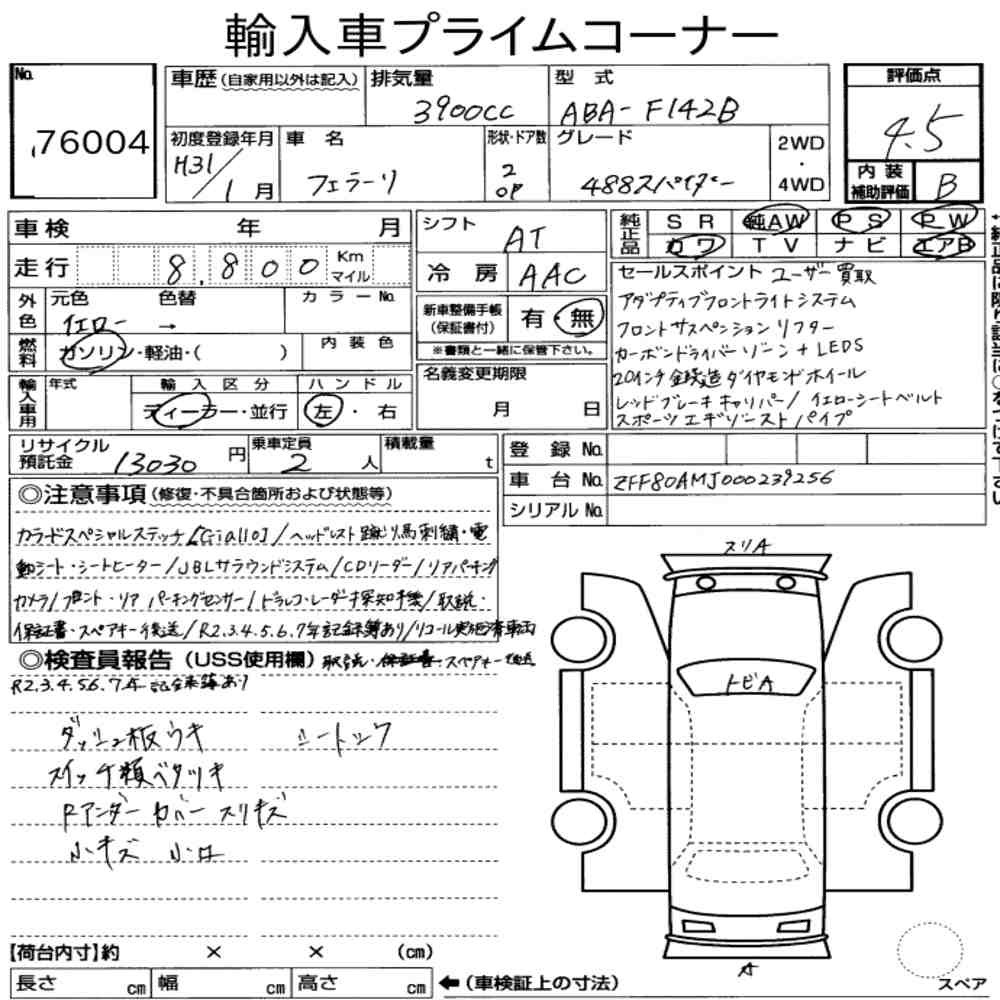 輸入車プライムコーナー
No. 76004
車歴(自家用以外は記入)
排気量 3900cc
型式 ABA-F142B
評価点 4.5
内装補助評価 B
初度登録年月 H31/1月
車名 フェラーリ
形状・ドア数 2 OP
グレード 488スパイダー
2WD・4WD
車検 年 月
走行 8,800 Km マイル
外色 元色 イエロー 色替 → カラーNo.
燃料 ガソリン・軽油・( ) 内装色
輸入車用 年式 輸入区分 ディーラー・並行 ハンドル 左・右
シフト AT
冷房 AAC
新車整備手帳(保証書付) 有・無
※書類と一緒に保管下さい。
名義変更期限 月 日
純正品 SR 純AW PS PW
カワ TV ナビ エアB
セールスポイント ユーザー買取
アダプティブフロントライトシステム
フロントサスペンションリフター
カーボンドライバーゾーン+LEDS
20インチ鍛造ダイヤモンドホイール
レッドブレーキキャリパー/イエローシートベルト
スポーツエギゾーストパイプ
リサイクル預託金 13030円
乗車定員 2人
積載量 t
登録No.
車台No. ZFF80AMJ000239256
シリアルNo.
◎注意事項(修復・不具合箇所および状態等)
カラードスペシャルステッチ[Giallo]/ヘッドレスト跳ね馬刺繍・電
動シート・シートヒーター/JBLサラウンドシステム/CDリーダー/リアパーキング
カメラ/フロント・リアパーキングセンサー/ドラレコ・レーダー探知機/取説・
保証書・スペアキー後送/R2.3.4.5.6.7年記録簿あり/リコール実施済車両
◎検査員報告(USS使用欄) 取説・保証書・スペアキー後送
R2.3.4.5.6.7年記録簿あり
ダッシュ板ウキ シートスレ
スイッチ類ベタツキ
Rアンダーカバースリキズ
小キズ 小凹
スリA
トビA
A
スペア
【荷台内寸】約 × × (cm)
長さ cm 幅 cm 高さ cm ←(車検証上の寸法)